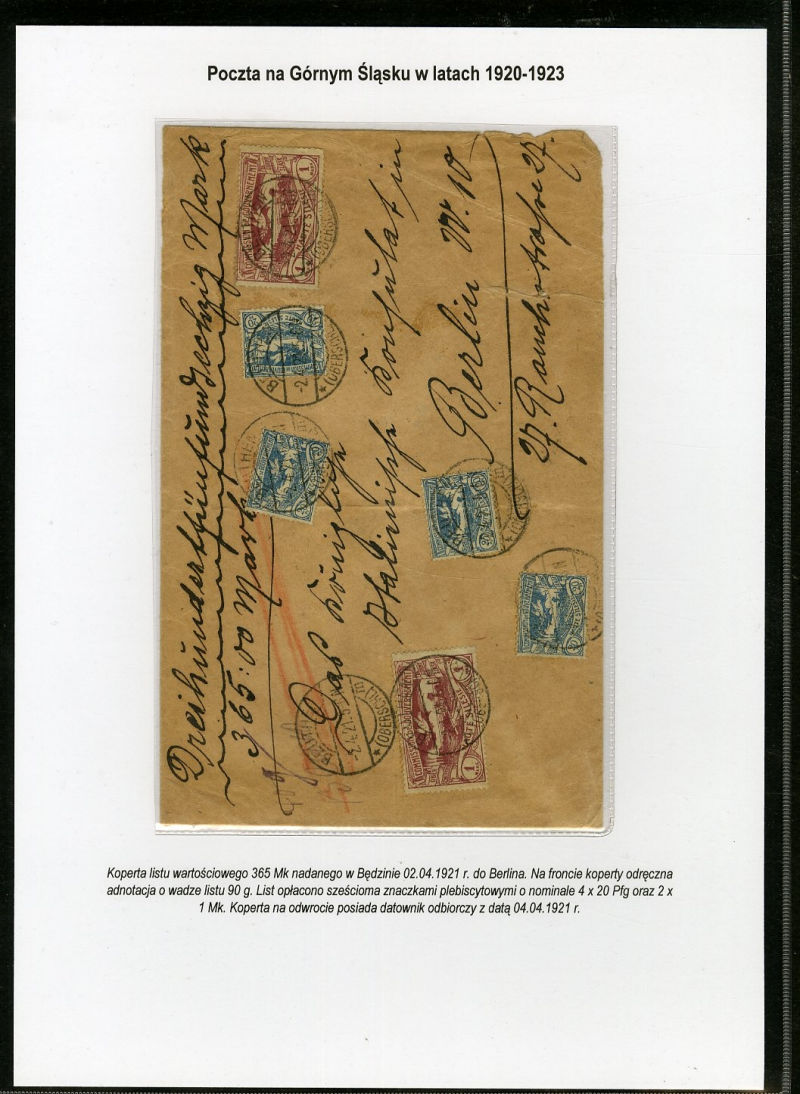 Poczta na Górnym Śląsku w latach 1920-1923
Dreihundertfünfundsechzig Mark
365:00 Mark
Das Königliche
Italienische Konsulat in
Berlin W. 10
27. Rauchstraße 27.
BEUTHEN
(OBERSCHL)
2.4.21
1
1
20
20
20
20
1
1
Koperta listu wartościowego 365 Mk nadanego w Będzinie 02.04.1921 r. do Berlina. Na froncie koperty odręczna
adnotacja o wadze listu 90 g. List opłacono sześcioma znaczkami plebiscytowymi o nominale 4 x 20 Pfg oraz 2 x
1 Mk. Koperta na odwrocie posiada datownik odbiorczy z datą 04.04.1921 r.